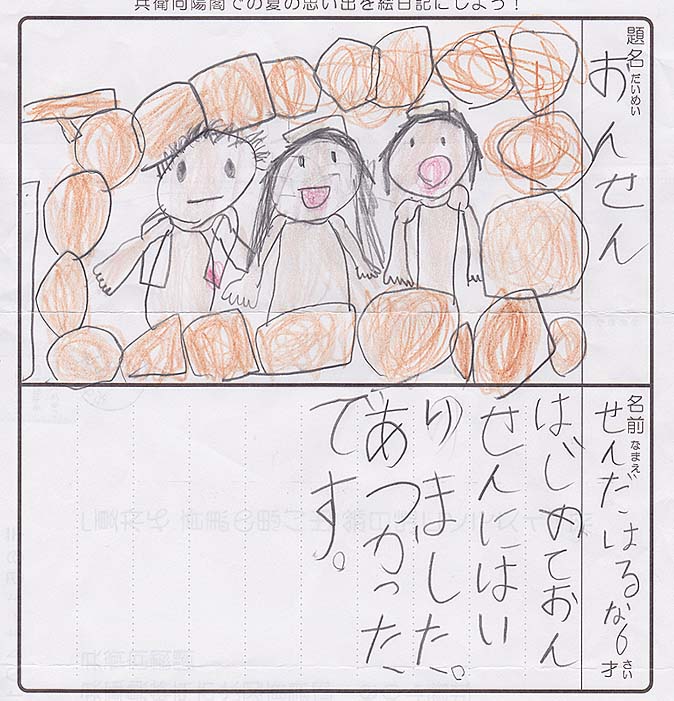 兵衛向陽閣での夏の思い出を絵日記にしよう！
題名
だいめい
おんせん
名前
なまえ
せんだはるな6才
さい
はじめておん
せんにはい
りました。
あつかった
です。